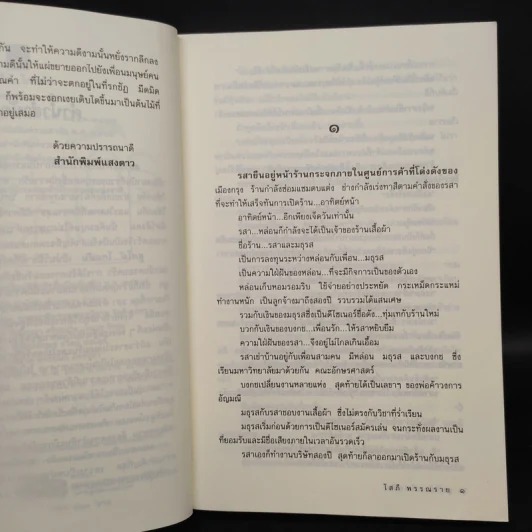 กัน จะทำให้ความดีงามนั้นหยั่งรากลึกลง
ามดีนั้นให้แผ่ขยายออกไปยังเพื่อนมนุษย์คน
ณค่า ที่ไม่ว่าจะตกอยู่ในที่รกชัฏ มืดมิด
ก็พร้อมจะงอกเงยเติบโตขึ้นมาเป็นต้นไม้ที่
อยู่เสมอ
ด้วยความปรารถนาดี
สำนักพิมพ์แสงดาว
๑
รสายืนอยู่หน้าร้านกระจกภายในศูนย์การค้าที่โด่งดังของ
เมืองกรุง ร้านกำลังซ่อมแซมตบแต่ง ช่างกำลังเร่งทาสีตามคำสั่งของรสา
ที่จะทำให้เสร็จทันการเปิดร้าน...อาทิตย์หน้า
อาทิตย์หน้า...อีกเพียงเจ็ดวันเท่านั้น
รสา...หล่อนก็กำลังจะได้เป็นเจ้าของร้านเสื้อผ้า
ชื่อร้าน...รสาและมธุรส
เป็นการลงทุนระหว่างหล่อนกับเพื่อน...มธุรส
เป็นความใฝ่ฝันของหล่อน...ที่จะมีกิจการเป็นของตัวเอง
หล่อนเก็บหอมรอมริบ ใช้จ่ายอย่างประหยัด กระเหม็ดกระแหม่
ทำงานหนัก เป็นลูกจ้างมาถึงสองปี รวบรวมได้แสนเศษ
รวมกับเงินของมธุรสซึ่งเป็นดีไซเนอร์ชื่อดัง...ทุ่มเทกับร้านใหม่
บวกกับเงินของบงกช...เพื่อนรัก...ให้รสาหยิบยืม
ความใฝ่ฝันของรสา...จึงอยู่ไม่ไกลเกินเอื้อม
รสาเช่าบ้านอยู่กับเพื่อนสามคน มีหล่อน มธุรส และบงกช ซึ่ง
เรียนมหาวิทยาลัยมาด้วยกัน คณะอักษรศาสตร์
บงกชเปลี่ยนงานหลายแห่ง สุดท้ายได้เป็นเลขาฯ ของพ่อค้าวงการ
อัญมณี
มธุรสกับรสาชอบงานเสื้อผ้า ซึ่งไม่ตรงกับวิชาที่ร่ำเรียน
มธุรสเริ่มก่อนด้วยการเป็นดีไซเนอร์สมัครเล่น จนกระทั่งผลงานเป็น
ที่ยอมรับและมีชื่อเสียงภายในเวลาอันรวดเร็ว
รสาเองก็ทำงานบริษัทสองปี สุดท้ายก็ลาออกมาเปิดร้านกับมธุรส
โสภี พรรณราย ๑